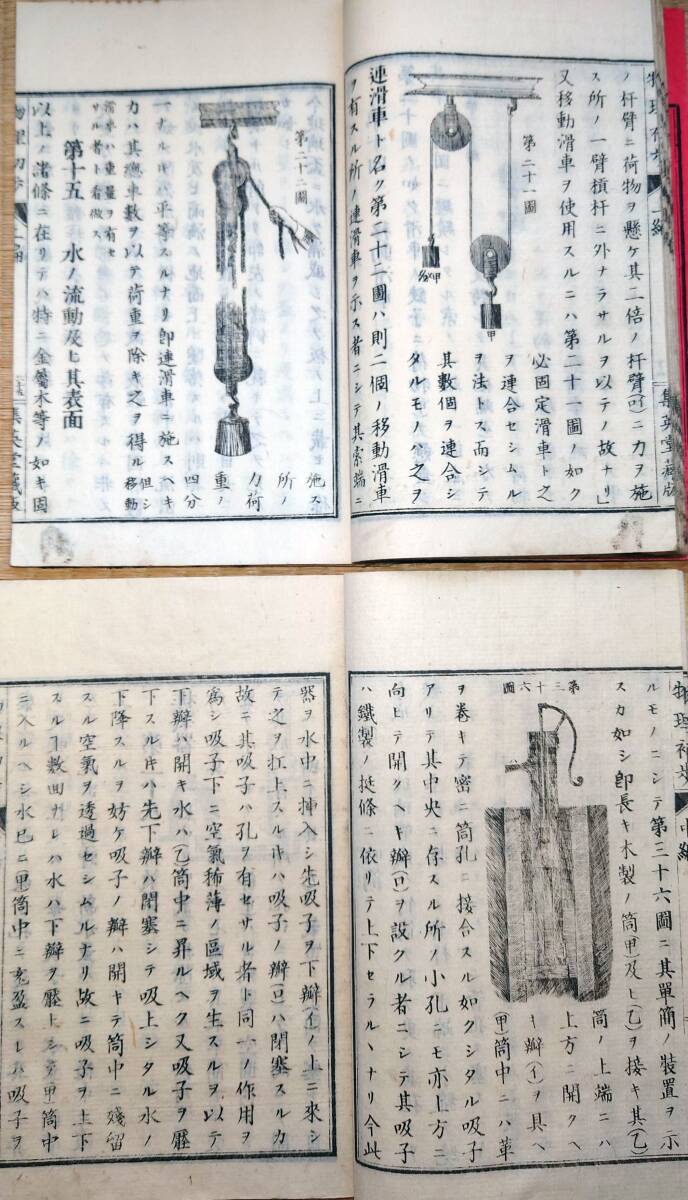 物理初歩 上編
集英堂蔵版
ノ杆臂ニ荷物ヲ懸ケ其二倍ノ杆臂(可)ニ力ヲ施
ス所ノ一臂槓杆ニ外ナラサルヲ以テノ故ナリ」
又移動滑車ヲ使用スルニハ第二十一圖ノ如ク
必固定滑車ト之
ヲ連合セシムル
ヲ法トス而シテ
其數個ヲ連合シ
タルモノハ之ヲ
第二十一圖
甲
連滑車ト名ク第二十二圖ハ則二個ノ移動滑車
ヲ有スル所ノ連滑車ヲ示ス者ニシテ其索端ニ
施ス
所ノ
力荷
重ノ
四分
第二十二圖
一ナルトキハ平等スルナリ即連滑車ニ施スヘキ
力ハ其總車數ヲ以テ荷重ヲ除キ之ヲ得ル 但シ移動
滑車ハ重量ヲ有セ
サル者ト看做ス
第十五 水ノ流動及ヒ其表面
以上ノ諸條ニ在リテハ特ニ金屬木等ノ如キ固
集英堂蔵版
物理初歩 中編
ルモノニシテ第三十六圖ニ其單簡ノ装置ヲ示
スカ如シ即長キ木製ノ筒(甲)及ヒ(乙)ヲ接キ其(乙)
筒ノ上端ニハ
上方ニ開クヘ
キ瓣(イ)ヲ具ヘ
(甲)筒中ニハ革
第三十六圖
ヲ巻キテ密ニ筒孔ニ接合スル如クシタル吸子
アリテ其中央ニ存スル所ノ小孔ニモ亦上方ニ
向上テ開クヘキ瓣(ロ)ヲ設クル者ニシテ其吸子
ハ鐵製ノ挺條ニ依リテ上下セラルヽナリ今此
器ヲ水中ニ挿入シ先吸子ヲ下瓣(イ)ノ上ニ來シ
テ之ヲ扛上スルトキハ吸子ノ瓣(ロ)ハ閉塞スルカ
故ニ其吸子ハ孔ヲ有セサル者ト同一ノ作用ヲ
為シ吸子下ニ空氣稀薄ノ區域ヲ生スルヲ以テ
下瓣ハ開キ水ハ(乙)筒中ニ昇ルヘク又吸子ヲ壓
下スルトキハ先下瓣ハ閉塞シテ吸上シタル水ノ
下降スルヲ妨ケ吸子ノ瓣ハ開キテ筒中ニ殘留
スル空氣ヲ透過セシムルナリ故ニ吸子ヲ上下
スルコト數回ナレハ水ハ下瓣ヲ壓上シテ甲筒中
ニ入ルヘシ水已ニ甲筒中ニ充盈スレハ吸子ヲ